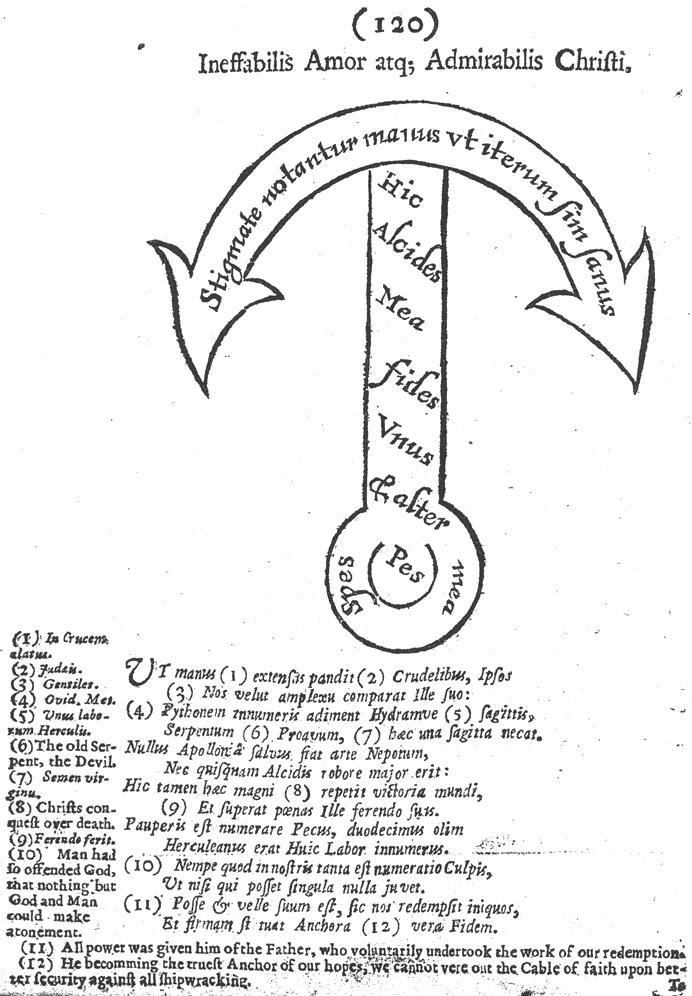 (120)
Ineffabilis Amor atq; Admirabilis Chriſti.
Stigmate notantur manus vt iterum ſim ſanus
Hic
Alcides
Mea
fides
Vnus
&alter
Pes
Spes
mea
(1) In Crucem
alatus.
(2) Judæis.
(3) Gentiles.
(4) Ovid. Met.
(5) Vnus labo-
rum Herculis.
(6) The old Ser-
pent, the Devil.
(7) Semen vir-
ginu.
(8) Chriſts con-
queſt over death.
(9) Ferendo ferit.
(10) Man had
ſo offended God,
that nothing but
God and Man
could make
atonement.
UT manus (1) extenſas pandit (2) Crudelibus, Ipſos
(3) Nos velut amplexu comparat Ille ſuo:
(4) Pythonem innumeris adiment Hydramve (5) ſagittis,
Serpentum (6) Proavum, (7) hæc una ſagitta necat.
Nullus ſalvus fiat arte Nepotum,
Nec quiſquam Alcidis robore major erit:
Hic tamen hæc magni (8) repetit victoria mundi,
(9) Et ſuperat pœnas Ille ferendo ſuas.
Pauperis eſt numerare Pecus, duodecimus olim
Herculeanus erat Huic Labor innumerus.
(10) Nempe quod in noſtris tanta eſt numeratio Culpis,
Ut niſi qui poſſet ſingula nulla juvet.
(11) Poſſe & velle ſuum eſt, ſic nos redempſit iniquos,
Et firmam ſtatuat Anchora (12) vera Fidem.
(11) All power was given him of the Father, who voluntarily undertook the work of our redemption.
(12) He becomming the trueſt Anchor of our hopes, we cannot vere out the Cable of faith upon bet-
ter ſecurity againſt all ſhipwracking.
To